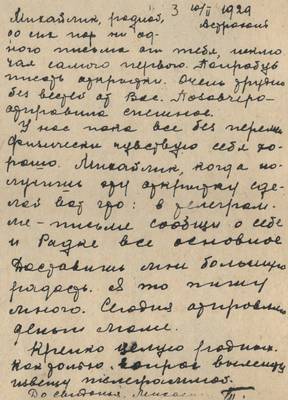 3 10/II 1929
Михайлик, родной, Астрахань
до сих пор ни од-
ного письма от тебя, исклю
чая самого первого. Попробуй
писать открытки. Очень трудно
без вестей от Вас. Позавчера
отправила спешное.
У нас пока все без перемен
физически чувствую себя хо-
рошо. Михайлик, когда по-
лучишь эту открытку сде-
лай вот что: в телеграм-
ме-письме сообщи о себе
и Радке все основное
Доставишь мне большую
радость. Я то пишу
много. Сегодня отправляю
деньги маме.
Крепко целую родной.
Как только вопрос выяснится
извещу телеграммой.
До свиданья.